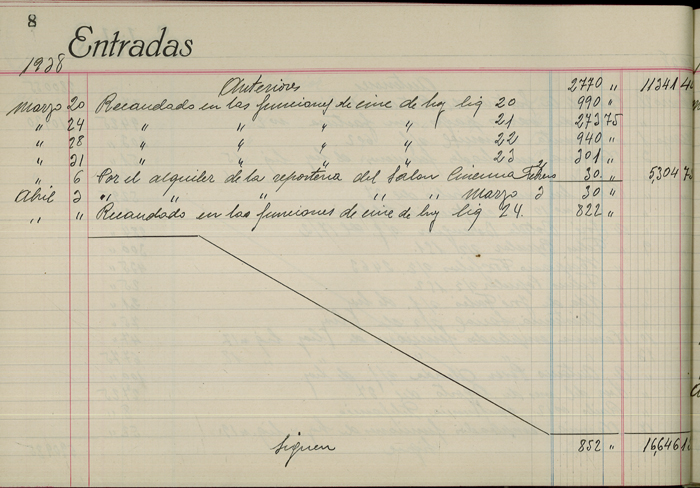 8
Entradas
1938
Anteriores 2770 " 11341 4
Marzo 20 Recaudado en las funciones de cine de hoy liq 20 990 "
" 24 " " " " 21 273 75
" 28 " " " " 22 940 "
" 31 " " " " 23 301 "
" 6 Por el alquiler de la reposteria del Salon Cinema Febrero 30 " 5,304 75
Abril 3 " " " " " Marzo 3 30 "
" " Recaudado en las funciones de cine de hoy liq 24. 822 "
Siguen 852 " 16,646 1